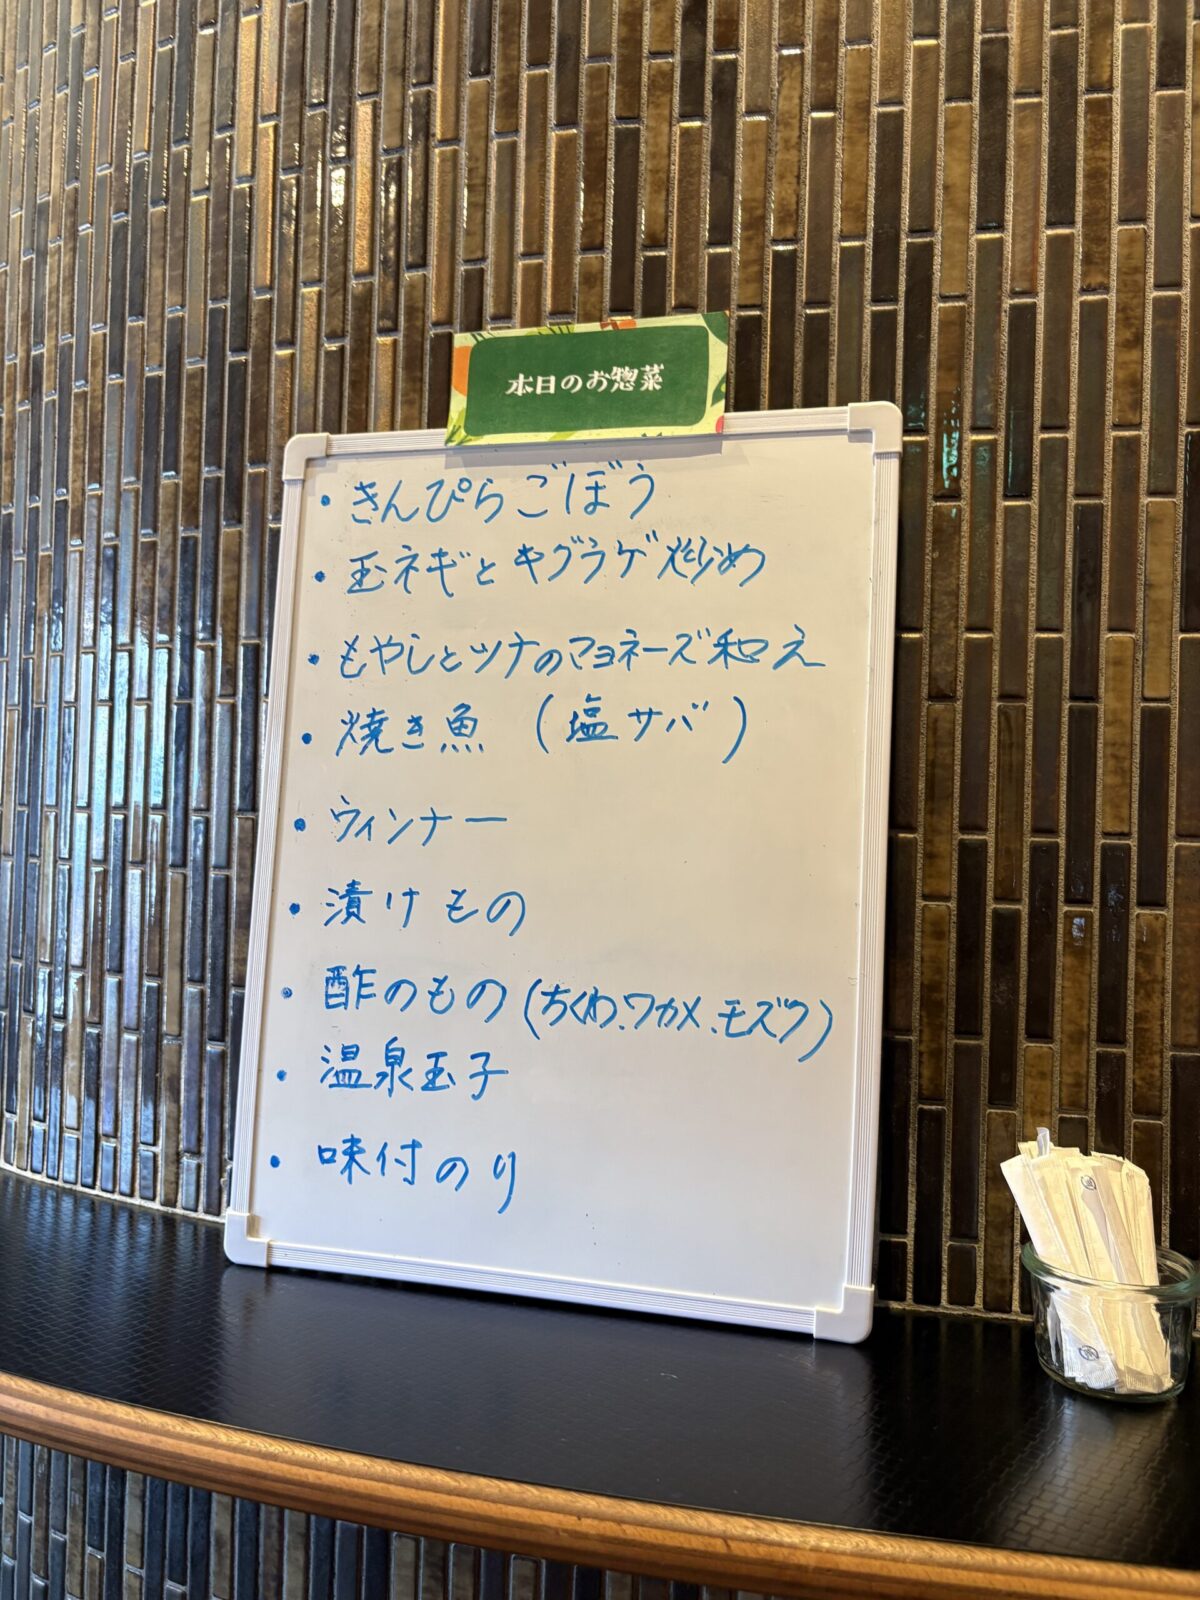 本日のお惣菜
・きんぴらごぼう
・玉ネギとキグラゲ炒め
・もやしとツナのマヨネーズ和え
・焼き魚 (塩サバ)
・ウィンナー
・漬けもの
・酢のもの(ちくわ、ワカメ、モズク)
・温泉玉子
・味付のり